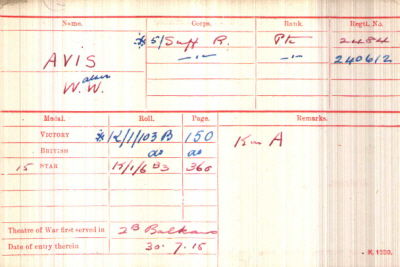 Name. Corps. Rank. Regtl. No.
*5/Suff R. Pte 2484
AVIS -"- -"- 240612
W.W.
Medal. Roll. Page. Remarks.
VICTORY *K/1/103 B 150 K in A
BRITISH do do
15 STAR K/1/6 B3 360
Theatre of War first served in 2B Balkans
Date of entry therein 30.7.15
K. 1380.